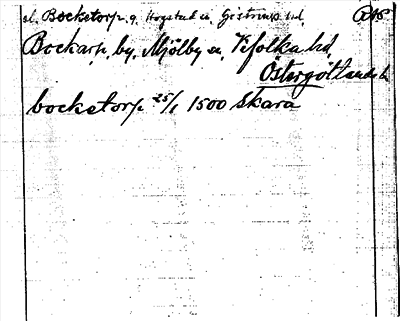 el. Bocketorp, g. Hogstad sn, Göstrings hd,
Bockarp, by, Mjölby sn, Vifolka hd,
Östergötlands l.
bocketorp 25/1 1500 Skara